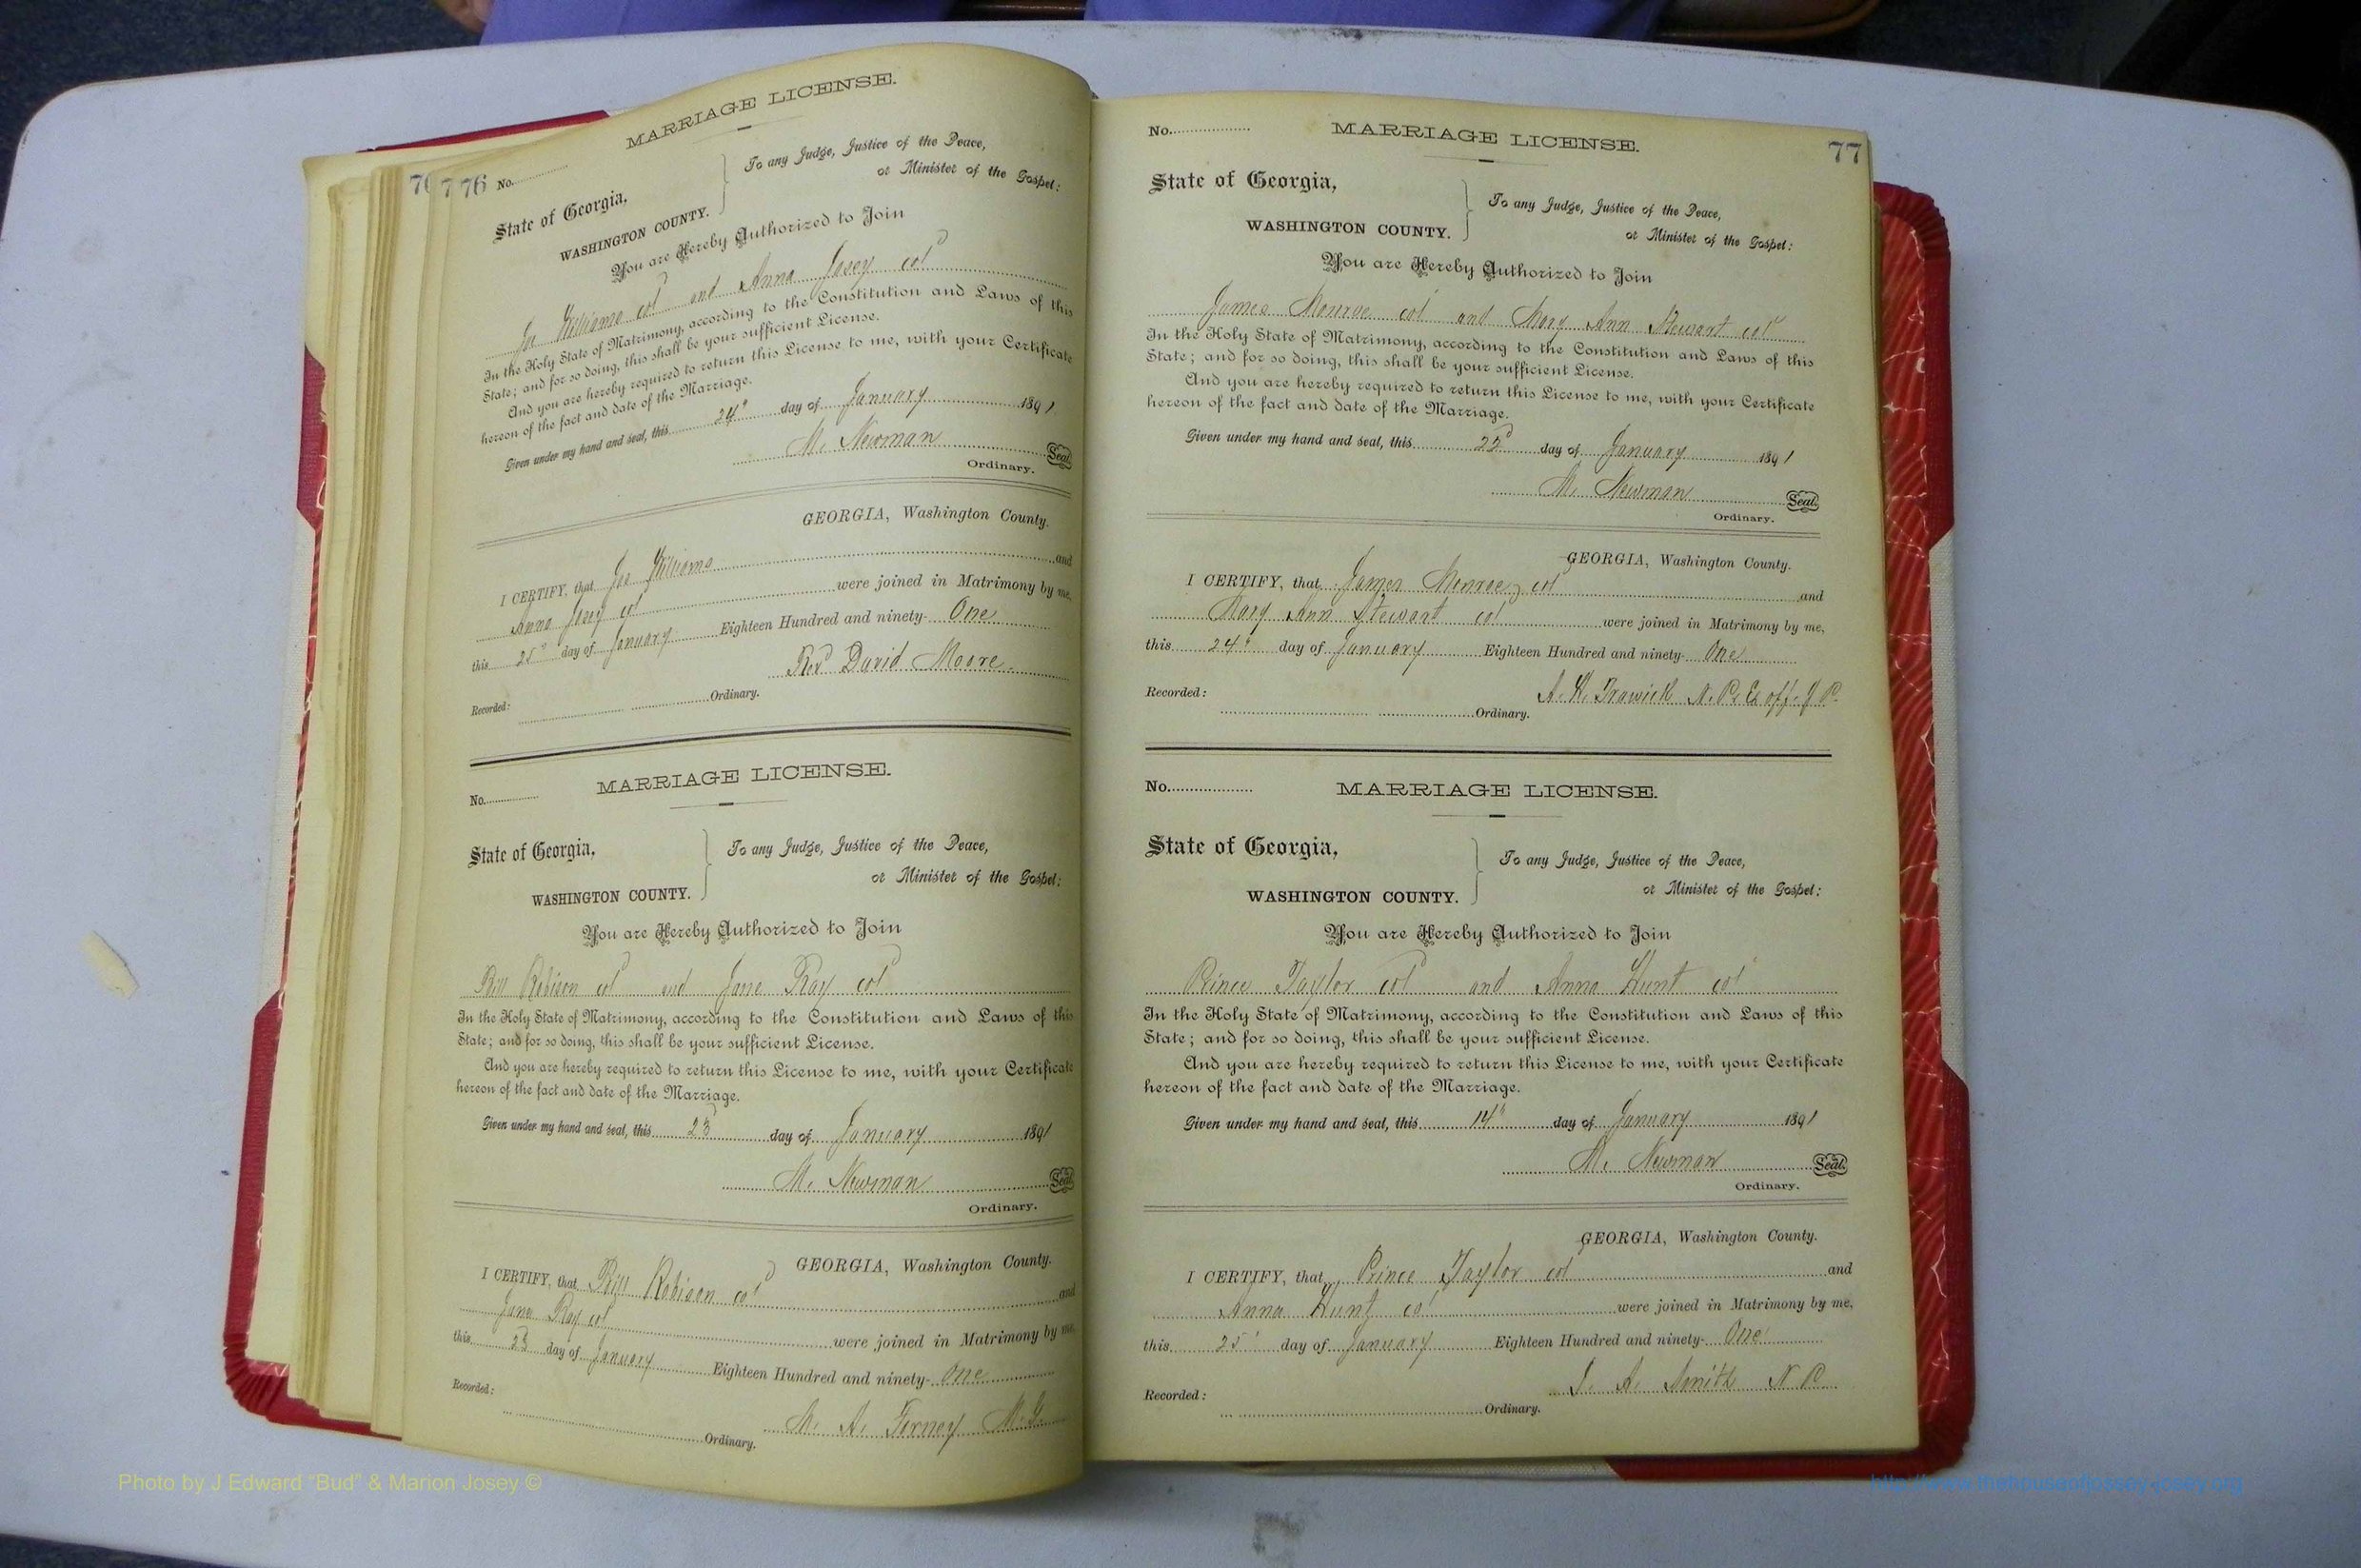 70 7 76 No.
MARRIAGE LICENSE.
State of Georgia,
WASHINGTON COUNTY.
To any Judge, Justice of the Peace,
or Minister of the Gospel:
You are Hereby Authorized to Join
Joe Williams col and Anna Josey col
In the Holy State of Matrimony, according to the Constitution and Laws of this
State; and for so doing, this shall be your sufficient License.
And you are hereby required to return this License to me, with your Certificate
hereon of the fact and date of the Marriage.
Given under my hand and seal, this 24" day of January 1891
M. Newman Seal
Ordinary.
GEORGIA, Washington County.
I CERTIFY, that Joe Williams and
Anna Josey col were joined in Matrimony by me,
this 25" day of January Eighteen Hundred and ninety- One
Revd David Moore
Recorded: Ordinary.
MARRIAGE LICENSE.
No.
State of Georgia,
WASHINGTON COUNTY.
To any Judge, Justice of the Peace,
or Minister of the Gospel:
You are Hereby Authorized to Join
Bill Robison col and Jane Ray col
In the Holy State of Matrimony, according to the Constitution and Laws of this
State; and for so doing, this shall be your sufficient License.
And you are hereby required to return this License to me, with your Certificate
hereon of the fact and date of the Marriage.
Given under my hand and seal, this 23 day of January 1891
M. Newman Seal
Ordinary.
GEORGIA, Washington County.
I CERTIFY, that Bill Robison col and
Jane Ray col were joined in Matrimony by me,
this 23 day of January Eighteen Hundred and ninety- One
M. A. M.G.
Recorded: Ordinary.
No. MARRIAGE LICENSE. 77
State of Georgia,
WASHINGTON COUNTY.
To any Judge, Justice of the Peace,
or Minister of the Gospel:
You are Hereby Authorized to Join
James Monroe col and Mary Ann Stewart col
In the Holy State of Matrimony, according to the Constitution and Laws of this
State; and for so doing, this shall be your sufficient License.
And you are hereby required to return this License to me, with your Certificate
hereon of the fact and date of the Marriage.
Given under my hand and seal, this day of January 1891
M. Newman Seal
Ordinary.
GEORGIA, Washington County.
I CERTIFY, that James Monroe, col and
Mary Ann Stewart col were joined in Matrimony by me,
this 24" day of January Eighteen Hundred and ninety- One
A. H. Trawick N.P. Ex off. J P.
Recorded: Ordinary.
No. MARRIAGE LICENSE.
State of Georgia,
WASHINGTON COUNTY.
To any Judge, Justice of the Peace,
or Minister of the Gospel:
You are Hereby Authorized to Join
Prince Taylor col and Anna Hunt col
In the Holy State of Matrimony, according to the Constitution and Laws of this
State; and for so doing, this shall be your sufficient License.
And you are hereby required to return this License to me, with your Certificate
hereon of the fact and date of the Marriage.
Given under my hand and seal, this 14" day of January 1891
M. Newman Seal
Ordinary.
GEORGIA, Washington County.
I CERTIFY, that Prince Taylor col and
Anna Hunt col were joined in Matrimony by me,
this 25" day of January Eighteen Hundred and ninety- One
A. Smith N P.
Recorded: Ordinary.
Photo by J Edward "Bud" & Marion Josey ©
http://www.thehouseofjossey-josey.org